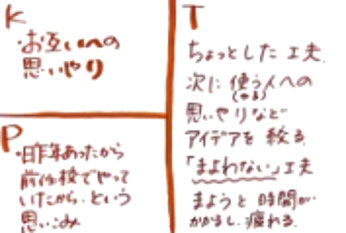 K
・お互いへの
思いやり
P
・昨年あったから
前任校でやって
いたから、という
思いこみ
T
ちょっとした工夫
次に使う人への
思いやりなど
アイデアを絞る
「まよわない」工夫
まようと時間が
かかるし、疲れる